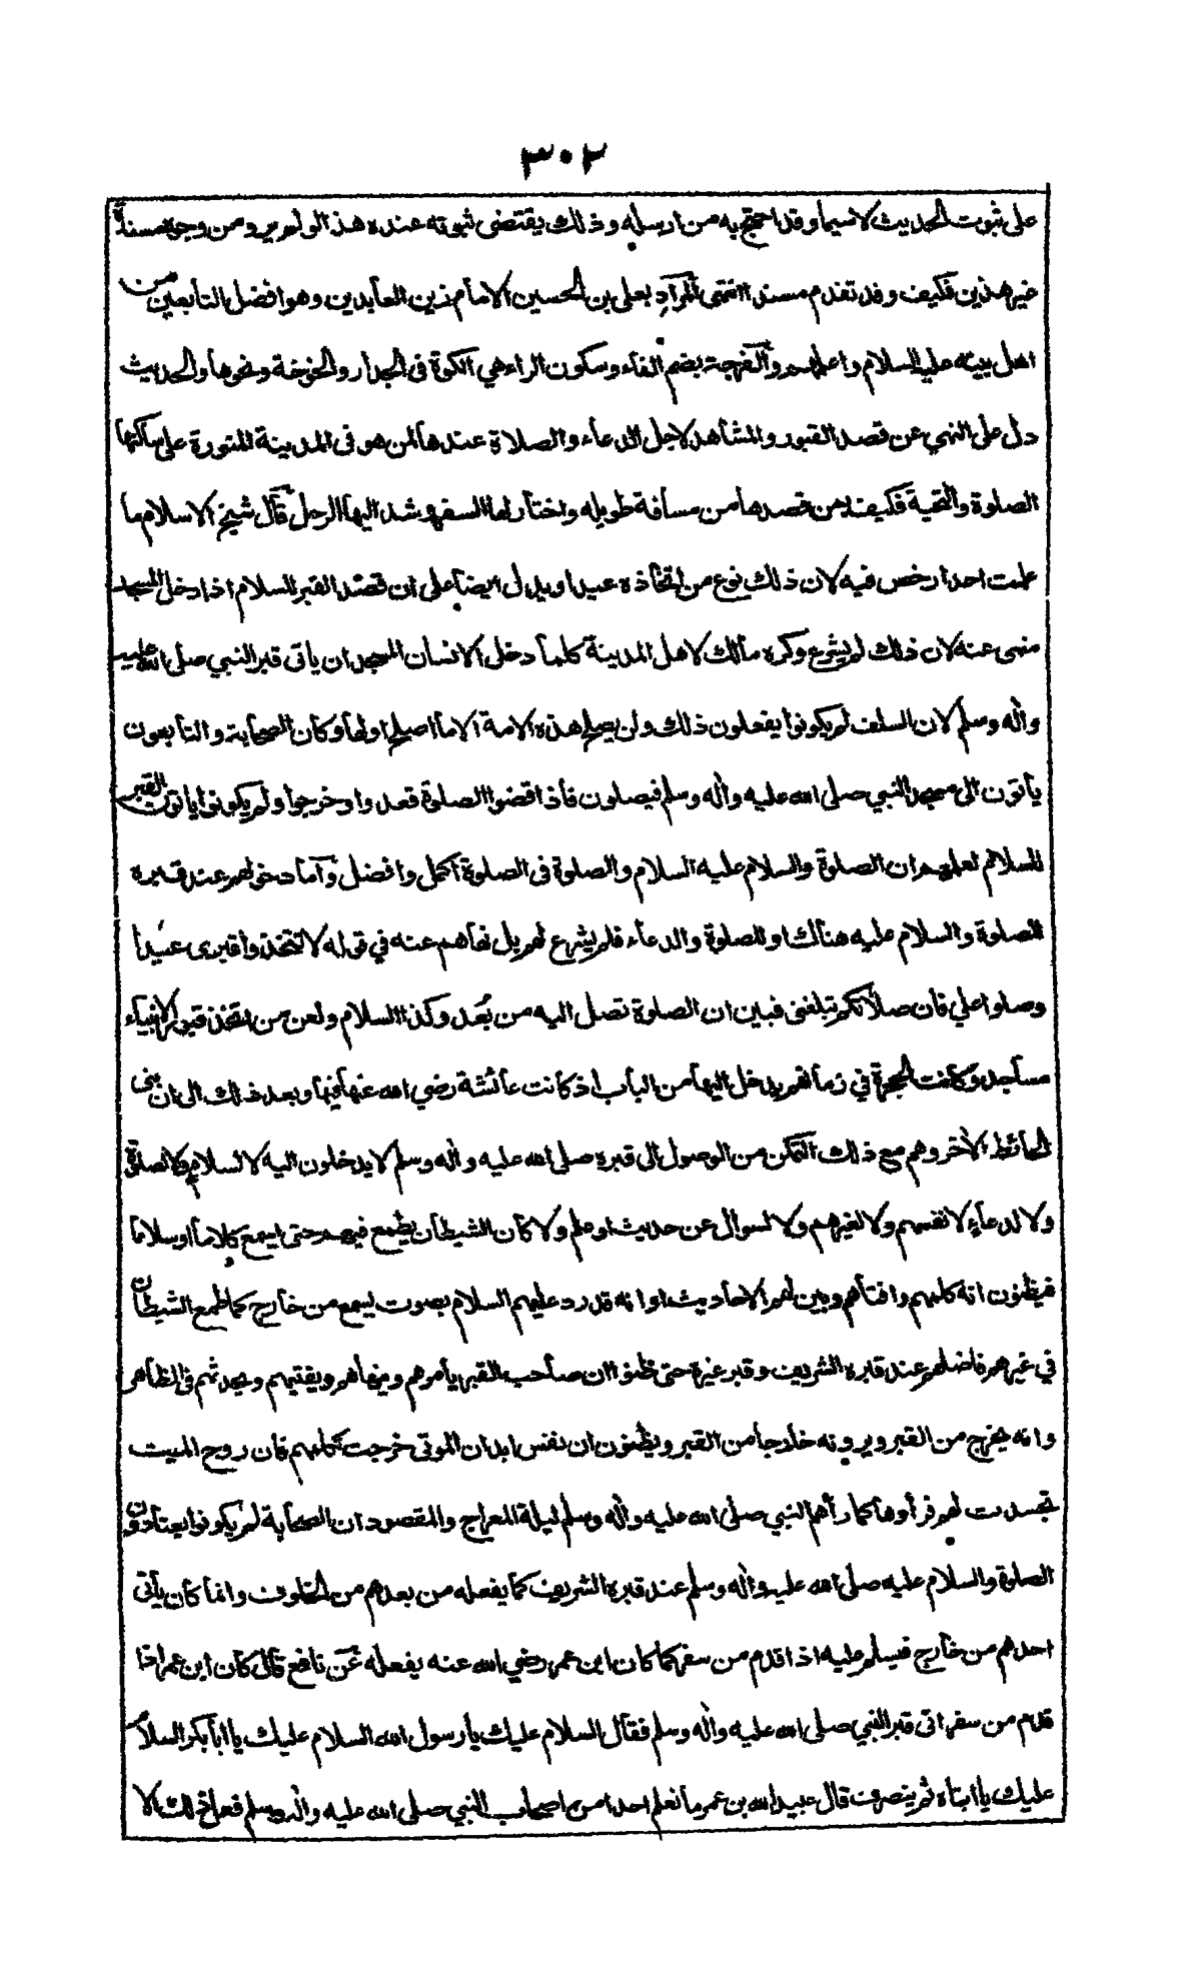 ٣٠٢
على ثبوت الحديث لاسيما وقد احتج به من ارسله وذلك يقتضى ثبوته عنده هذا لو لم يرو من وجوه مسندة
غير هذين فكيف وقد تقدم مسندا انتهى المراد بعلى بن الحسين الامام زين العابدين وهو افضل التابعين من
اهل بيته عليه السلام واعلمهم والفرجة بضم الفاء وسكون الراء هي الكوة فى الجدار والخوخة ونحوها والحديث
دل على النهي عن قصد القبور والمشاهد لاجل الدعاء والصلاة عندها لمن هو فى المدينة المنورة على ساكنها
الصلوة والتحية فكيف بمن قصدها من مسافة طويله واختار لها السفر وشد اليها الرحل قال شيخ الاسلام ما
علمت احدا رخص فيه لان ذلك نوع من اتخاذه عيدا ويدل ايضا على ان قصد القبر للسلام اذا دخل المسجد
منهى عنه لان ذلك لم يشرع وكره مالك لاهل المدينة كلما دخل الانسان المسجد ان ياتى قبر النبي صلى الله عليه
واله وسلم لان السلف لم يكونوا يفعلون ذلك ولن يصلح هذه الامة الا ما اصلح اولها وكان الصحابة والتابعون
يأتون الى مسجد النبي صلى الله عليه واله وسلم فيصلون فاذا قضوا الصلوة قعدوا وخرجوا ولم يكونوا يأتون القبر
للسلام لعلمهم ان الصلوة والسلام عليه السلام والصلوة فى الصلوة اكمل وافضل وآما دخولهم عند قبره
للصلوة والسلام عليه هنالك او للصلوة والدعاء فلم يشرع لهم بل نهاهم عنه في قوله لا تتخذوا قبرى عيدا
وصلوا علي فان صلاتكم تبلغنى فبين ان الصلوة تصل اليه من بُعد وكذا السلام ولعن من اتخذ قبور الانبياء
مساجد وكانت الحجرة في زمانهم يدخل اليها من الباب اذ كانت عائشة رضي الله عنها فيها وبعد ذلك الى ان بنى
الحائط الآخر وهم مع ذلك التمكن من الوصول الى قبره صلى الله عليه واله وسلم لا يدخلون اليه لا لسلام ولا لصلوة
ولا لدعاء لانفسهم ولا لغيرهم ولا لسوال عن حديث او علم ولا كان الشيطان يطمع فيهم حتى يسمع كلاما او سلاما
فيظنون انه كلمهم وافتاهم وبين لهم الاحاديث او انه قد رد عليهم السلام بصوت يسمع من خارج كما طمع الشيطان
في غيرهم فاضلهم عند قبره الشريف وقبر غيره حتى ظنوا ان صاحب القبر يأمرهم وينهاهم ويفتيهم ويحدثهم فى الظاهر
وانه يخرج من القبر ويرونه خارجا من القبر ويظنون ان نفس ابدان الموتى خرجت تكلمهم فان روح الميت
تجسدت لهم فرأوها كما رآهم النبي صلى الله عليه واله وسلم ليلة المعراج والمقصود ان الصحابة لم يكونوا يعتادون
الصلوة والسلام عليه صلى الله عليه واله وسلم عند قبره الشريف كما يفعله من بعدهم من الخلوف وانما كان يأتى
احدهم من خارج فيسلم عليه اذا قدم من سفر كما كان ابن عمر رضي الله عنه يفعله عن نافع قال كان ابن عمر اذا
قدم من سفر اتى قبر النبي صلى الله عليه واله وسلم فقال السلام عليك يا رسول الله السلام عليك يا ابا بكر السلام
عليك يا ابتاه ثم ينصرف قال عبيد الله بن عمر ما نعلم احدا من اصحاب النبي صلى الله عليه واله وسلم فعل ذلك الا